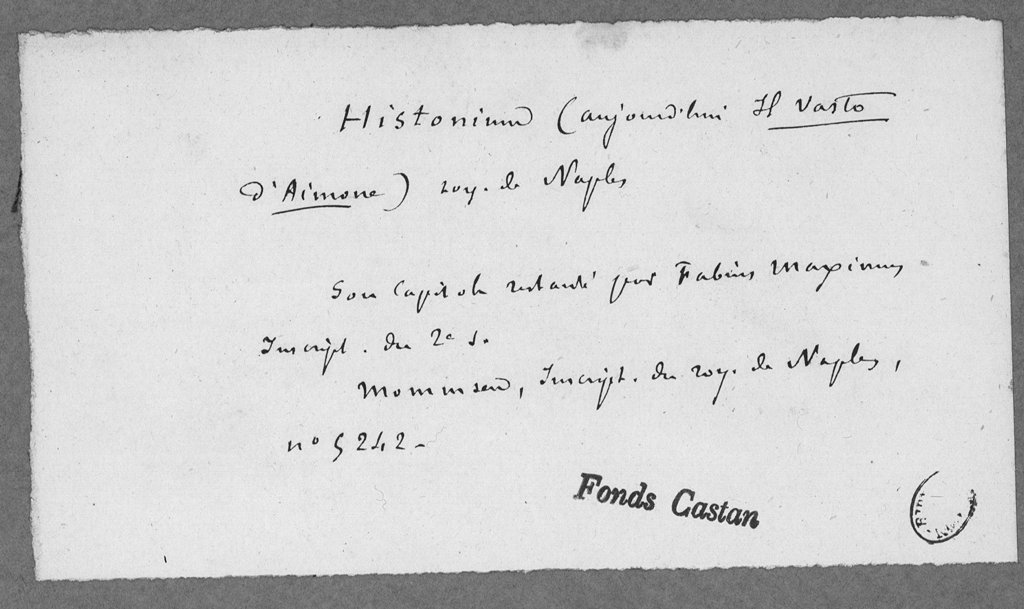 Histonium (aujourd'hui Il Vasto
d'Aimone) roy. de Naples
Son Capitole restauré par Fabius Maximus
Inscript. du 2e s.
Mommsen, Inscript. du roy. de Naples,
no 5242.
Fonds Castan